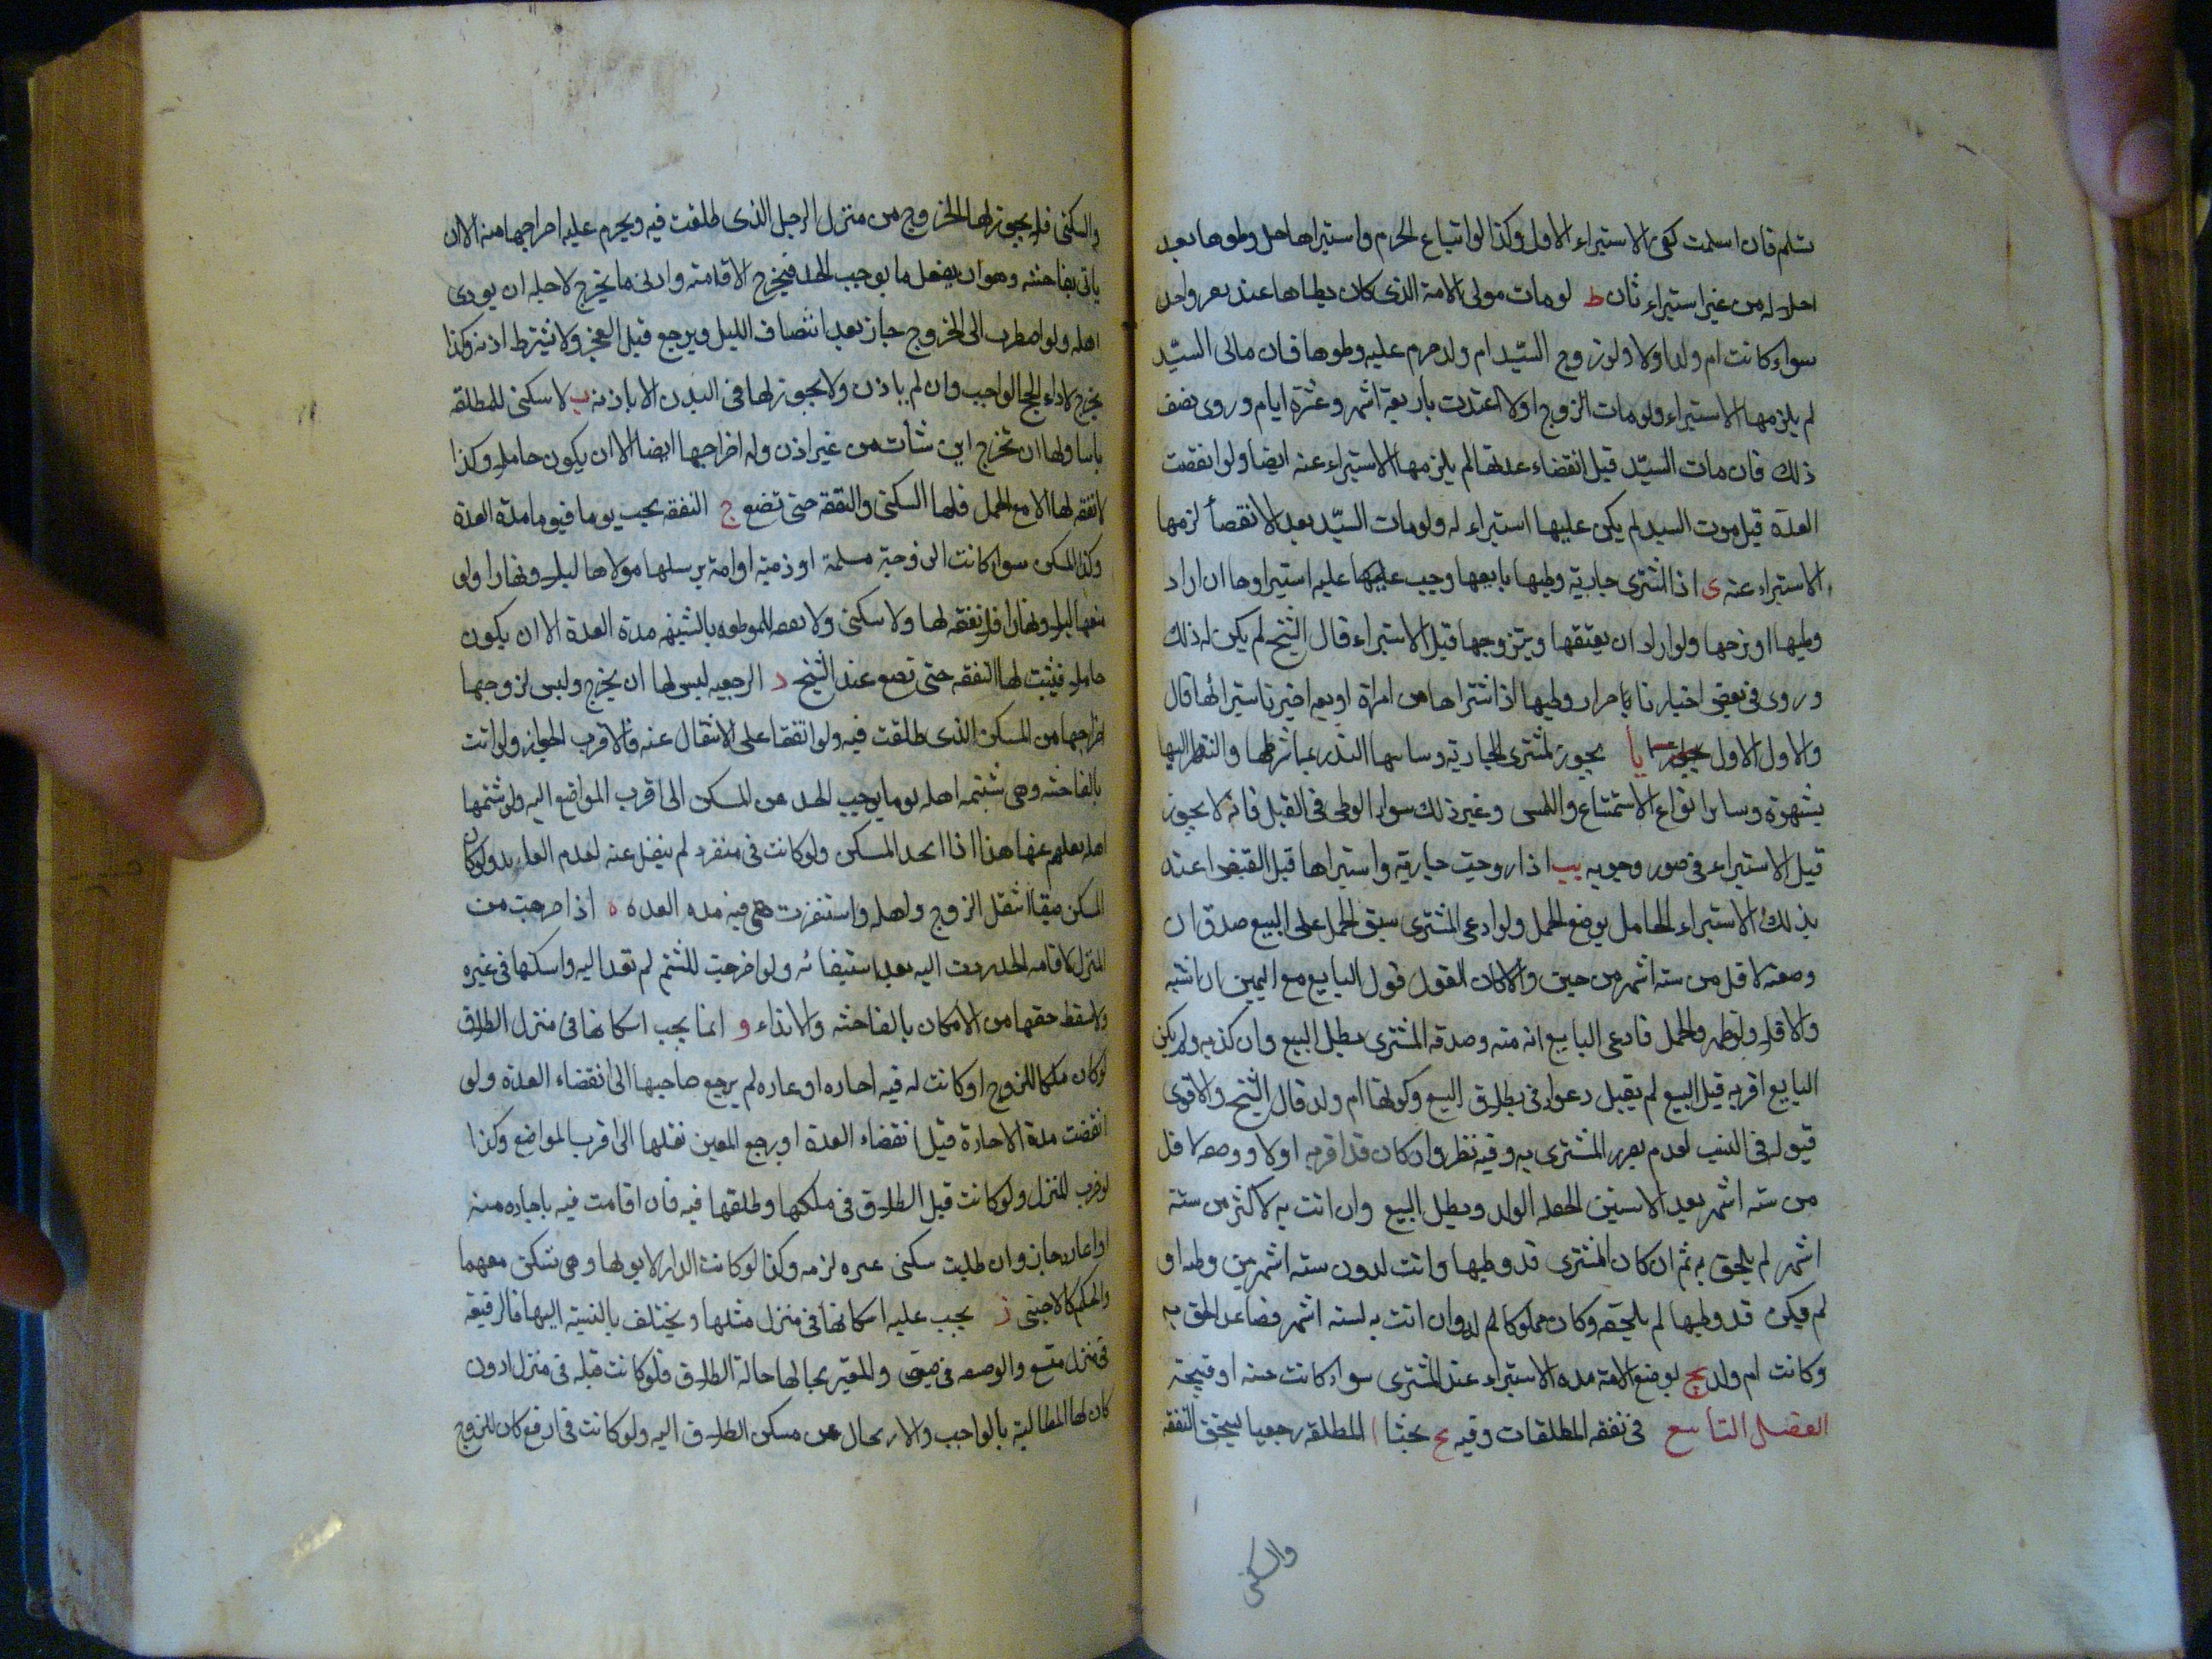 تسلم فان اسلمت كفى الاستبراء الاول وكذا لو ابتاع الحرم واستبراها حل وطوها بعد
احلاله من غير استبراء ثان ط لو مات مولى الامة الذي كان يطاها عند بعر واحد
سواء كانت ام ولد او لا ولو زوج السيّد ام ولد حرم عليه وطوها فان مات السيّد
لم يلزمها الاستبراء ولو مات الزوج اولا اعتدت باربعة اشهر وعشرة ايام وروى نصف
ذلك فان مات السيّد قبل انقضاء عدتها لم يلزمها الاستبراء عنه ايضا ولو انقضت
العدّة قبل موت السيد لم يكن عليها استبراء له ولو مات السيّد بعد الانقضاء لزمها
الاستبراء عنه ى اذا اشترى جارية وطيها بايعها وجب عليه استبراوها ان اراد
وطيها او تزجها ولو اراد ان يعتقها ويتزوجها قبل الاستبراء قال الشيخ لم يكن له ذلك
وروى في بعض اخبارنا جواز وطيها اذا اشتراها من امراة او بعد اخبر باستبرائها قال
والاول الاول يا يجوز لمشترى الجارية وسابيها التلذذ بمباشرتها والنظر اليها
بشهوة وساير انواع الاستمتاع واللمس وغير ذلك سوى الوطى فى القبل فانه لا يجوز
قبل الاستبراء فى صور وجوبه يب اذا روجت جارية واستبراها قبل القبض اعتد
بذلك الاستبراء الحامل بوضع الحمل ولو ادعى المشترى سبق الحمل على البيع صدق ان
وضعته لاقل من ستة اشهر من حين والا كان القول قول البايع مع اليمين ان اشتبه
والا فلا ولو ظهر الحمل فادعى البايع انه منه وصدقه المشترى بطل البيع وان كذبه ولم يكن
البايع اقر به قبل البيع لم يقبل دعواه فى بطلان البيع وكونها ام ولد قال الشيخ والاقوى
قبوله فى النسب لعدم ضرر المشترى به وفيه نظر وان كان قد اقر به اولا ووضعته لاقل
من ستة اشهر بعد الاستبراء لحقه الولد وبطل البيع وان اتت به لاكثر من ستة
اشهر لم يلحق به ثم ان كان المشترى قد وطيها واتت لدون ستة اشهر من وطئه او
لم يكن قد وطيها لم يلحقه وكان مملوكا له وان اتت به لستة اشهر فصاعدا لحق به
وكانت ام ولد يج توضع الامة مدة الاستبراء عند المشترى سواء كانت حسنة او قبيحة
الفصل التاسع فى نفقة المطلقات وفيه يج بحثا ا المطلقة رجعيا يستحق النفقة
والسكنى
والسكنى فلا يجوز لها الخروج من منزل الرجل الذى طلقت فيه ويحرم عليه اخراجها منه الا ان
ياتى بفاحشة وهو ان يفعل ما يوجب الحد فيخرج لاقامته وادنى ما يخرج لاجله ان يوذى
اهله ولو اضطرت الى الخروج جاز بعد انتصاف الليل ويرجع قبل الفجر ولا يشترط اذنه وكذا
يخرج لاداء الحج الواجب وان لم ياذن ولا يجوز لها فى الندب الا باذنه ب لا سكنى للمطلقة
باينا ولها ان تخرج اين شاءت من غير اذن وله اخراجها ايضا الا ان يكون حاملا وكذا
لا نفقة لها الا مع الحمل فلها السكنى والنفقة حتى تضع ج النفقة يجب يوما فيوما مدة العدة
وكذا السكنى سواء كانت الزوجة مسلمة او ذمية او امة يرسلها مولاها ليلا ونهارا ولو
منعها ليلا ونهارا فلا نفقة لها ولا سكنى ولا نفقة للموطوة بالشبهة مدة العدة الا ان يكون
حاملا فيثبت لها النفقة حتى تضع عند الشيخ د الرجعية ليس لها ان يخرج وليس لزوجها
اخراجها من المسكن الذى طلقت فيه ولو اتفقا على الانتقال عنه فالاقرب الجواز ولو اتت
بالفاحشة وهى شتمه اهله او ما يوجب الحد من المسكن الى اقرب المواضع اليه ولو شتمها
اهله نقلهم عنها هذا اذا اتحد المسكن ولو كانت فى منفرد لم ينقل عنه لعدم الفايدة ولو كان
المسكن ضيقا انتقل الزوج واهله واستقرت هى فيه مدة العدة ه اذا خرجت من
المنزل لاقامة الحد ردت اليه بعد استيفائه ولو اخرجت للشتم لم تعد اليه واسكنها فى غيره
ولا يسقط حقها من الاسكان بالفاحشة والايذاء و انما يجب اسكانها فى منزل الطلاق
لو كان ملكا للزوج او كانت له فيه اجاره او عاره لم يرجع صاحبها الى انقضاء العدة ولو
انقضت مدة الاجارة قبل انقضاء العدة او رجع المعير نقلها الى اقرب المواضع وكذا
لو خرب المنزل ولو كانت قبل الطلاق فى ملكها وطلقها فيه فان اقامت فيه باجاره منه
او اعاره جاز وان طلبت سكنى غيره لزمه وكذا لو كانت الدار لابويها وهى تسكن معهما
والحكم كالاجنبى ز يجب عليه اسكانها فى منزل مثلها ويختلف بالنسبة اليها فالرفيعة
فى منزل متسع والوضيعة فى ضيق والمعتبر بحالها حالة الطلاق فلو كانت قبله فى منزل ادون
كان لها المطالبة بالواجب والارتحال عن مسكن الطلاق اليه ولو كانت فى ارفع كان للزوج